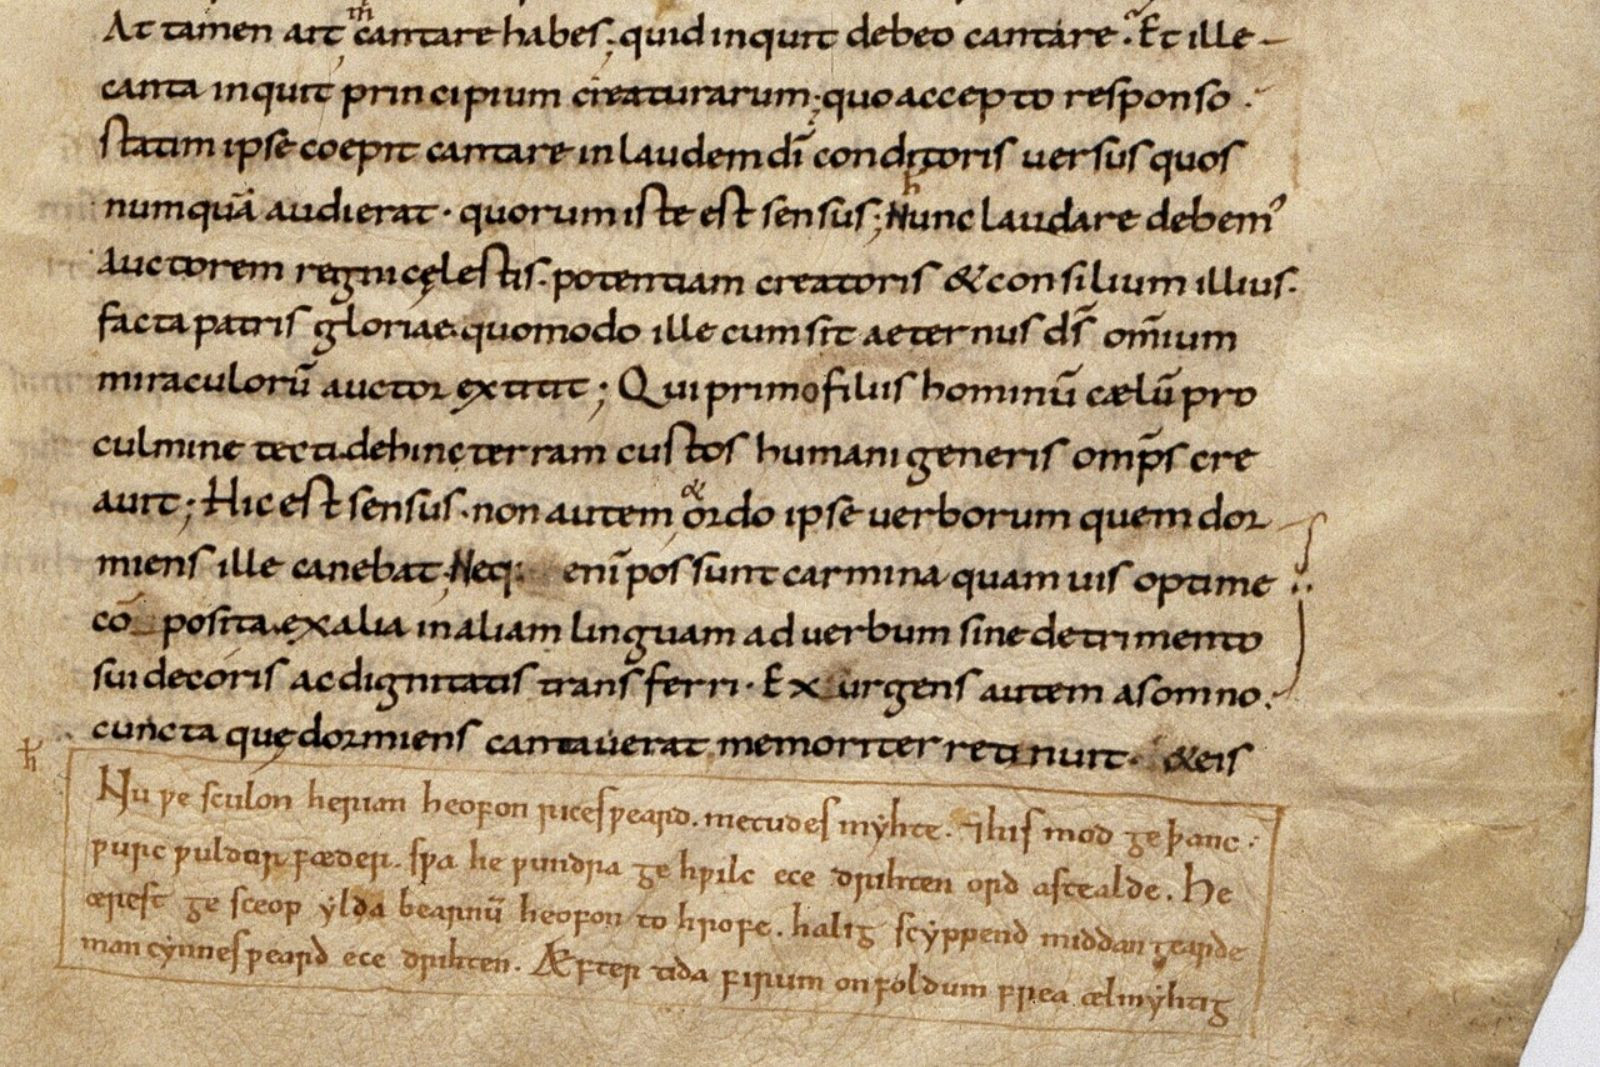 At tamen ait m̄ cantare habes; quid inquit debeo cantare. Et ille
canta inquit principium creaturarum; quo accepto responso.
statim ipse coepit cantare in laudem dī conditoris uersus quos
numquā audierat. quorum iste est sensus; Nunc laudare debem᾽
auctorem regni cęlestis. potentiam creatoris & consilium illius.
facta patris gloriae. quomodo ille cum sit aeternus ds̄ om̄ium
miraculorū auctor extitit; Qui primo filiis hominū cælū pro
culmine tecti. dehinc terram custos humani generis omp̄s cre
auit; Hic est sensus. non autem ordo ipse uerborum quem dor
miens ille canebat; Neq; enī possunt carmina quamuis optime
cō posita. ex alia in aliam linguam ad uerbum sine detrimento
sui decoris ac dignitatis transferri. Exurgens autem a somno.
cuncta quę dormiens cantauerat memoriter retinuit. & eis
Nu ƿe sculon herian heofon rices ƿeard. metudes myhte. ⁊ his mod ge þanc.
ƿurc ƿuldor fæder. sƿa he ƿundra ge hƿilc ece drihten ord astealde. He
ærest ge sceop ylda bearnū heofon to hrofe. halig scyppend middan gearde
man cynnes ƿeard ece drihten. Æfter tida firum on foldum frea ælmyhtig